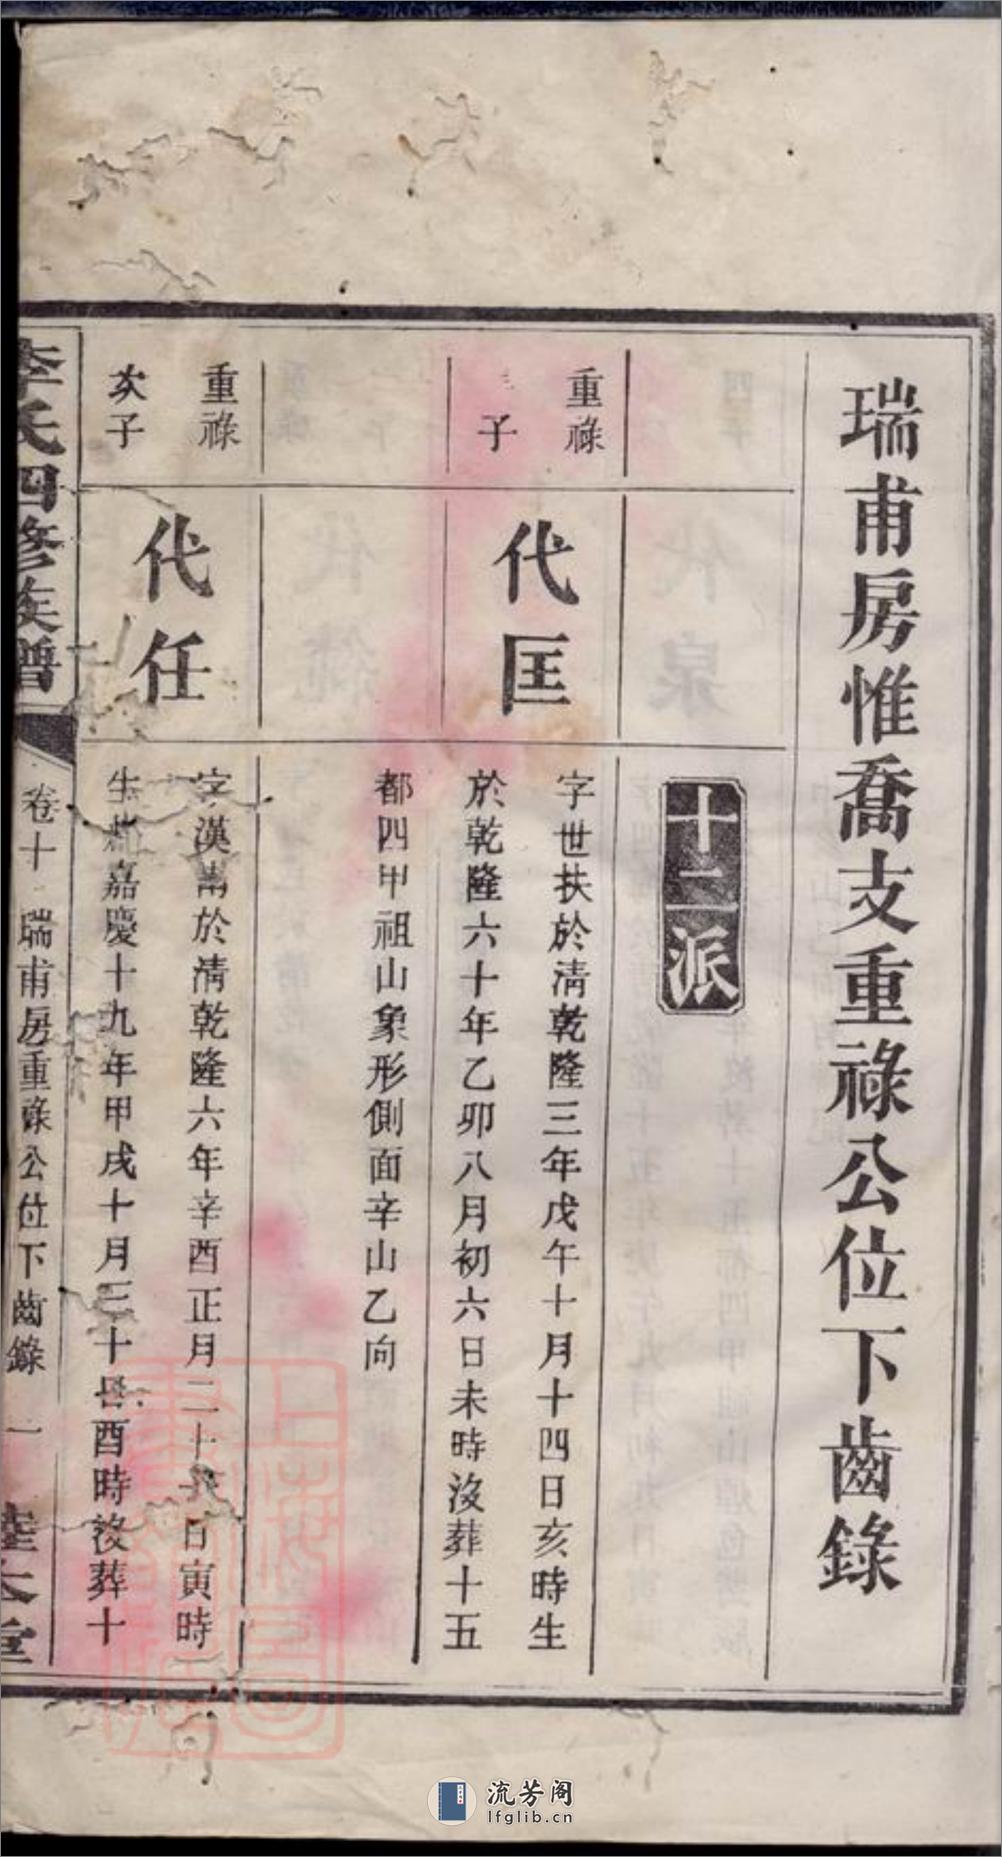 瑞甫房惟喬支重祿公位下齒錄
十二派
重祿
子
代匡
字世扶於淸乾隆三年戊午十月十四日亥時生
於乾隆六十年乙卯八月初六日未時沒葬十五
都四甲祖山象形側面辛山乙向
重祿
次子
代任
字漢於淸乾隆六年辛酉正月二十日寅時
生嘉慶十九年甲戌十月三十日酉時沒葬十
李氏四修族譜
卷十 瑞甫房重祿公位下齒錄 一
堂
流芳阁
lfglib.cn